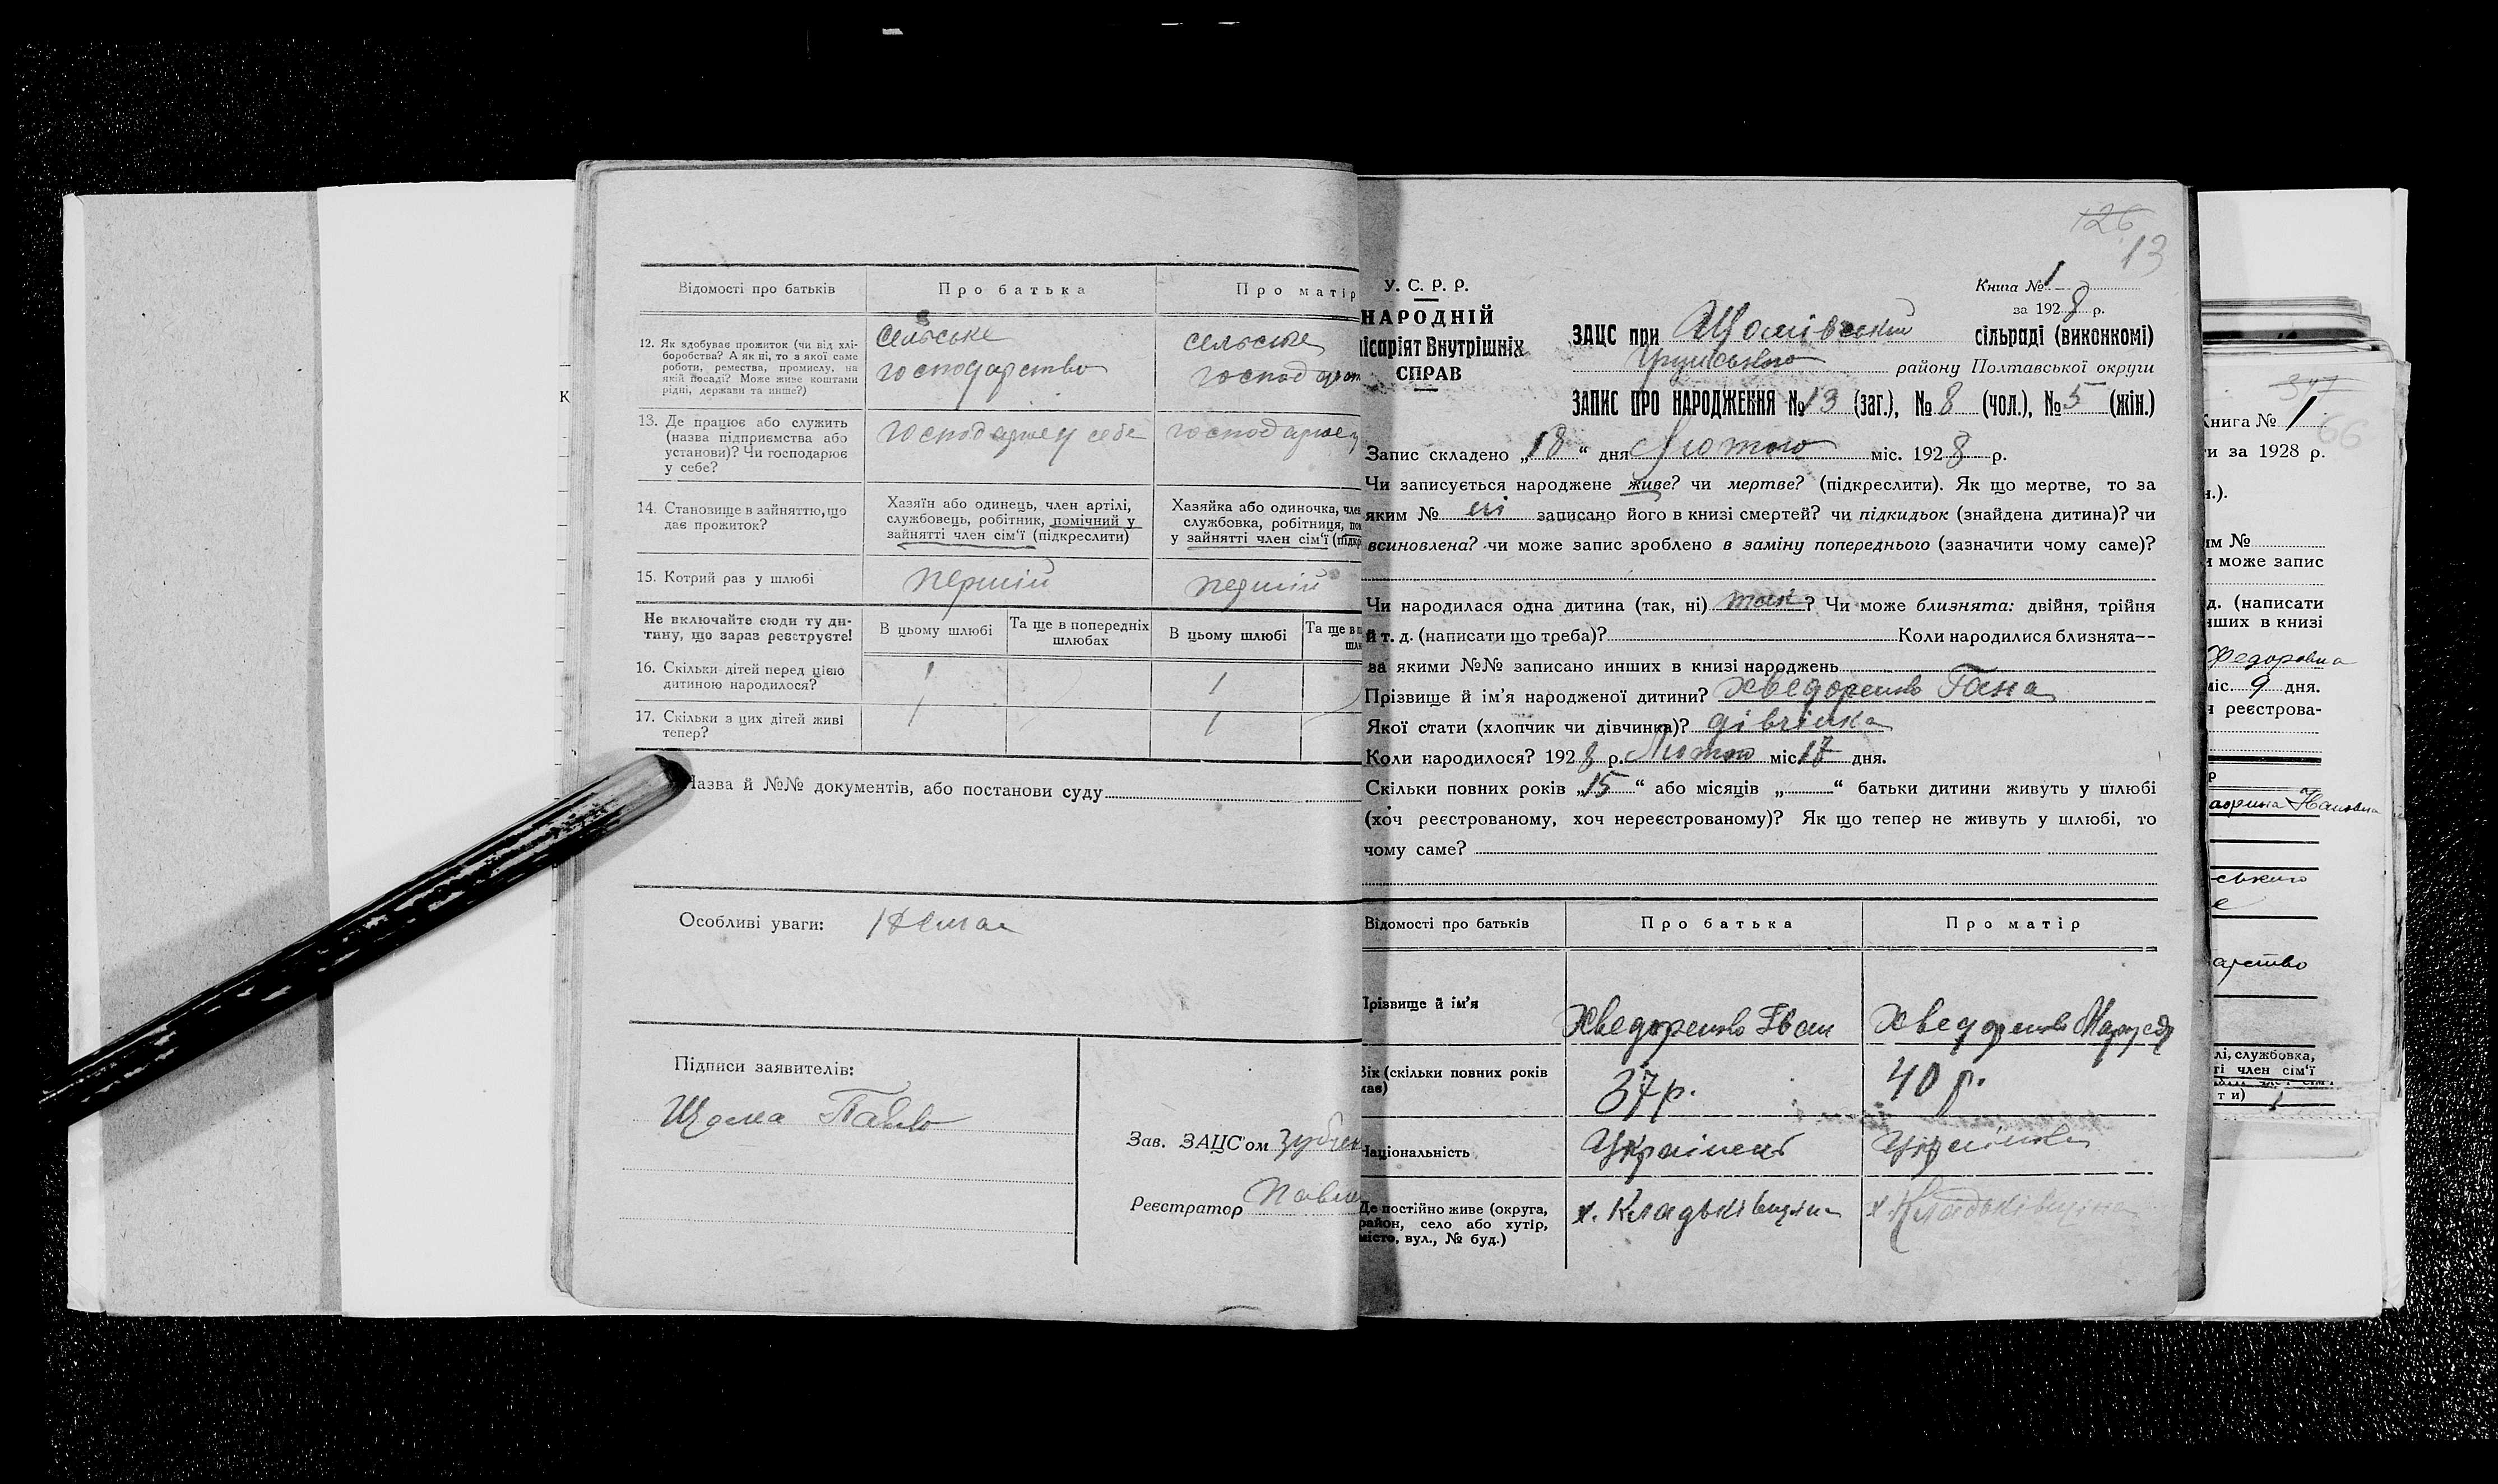 Відомості про батьків
Про батька
Про матір
12. Як здобуває прожиток (чи від хлі-
боробства? А як ні, то з якої саме
роботи, ремества, промислу, на
якій посаді? Може живе коштами
рідні, держави та инше?)
сельське
господарство
сельське
господар
13. Де працює або служить
(назва підприємства або
установи)? Чи господарює
у себе?
господарює у себе
господарює у
14. Становище в зайняттю, що
дає прожиток?
Хазяїн або одинець, член артілі,
службовець, робітник, помічний у
зайнятті член сім'ї (підкреслити)
Хазяйка або одиночка, член
службовка, робітниця, пом
у зайнятті член сім'ї (підкр
15. Котрий раз у шлюбі
перший
перший
Не включайте сюди ту ди-
тину, що зараз реєструєте!
В цьому шлюбі
Та ще в попередніх
шлюбах
В цьому шлюбі
Та ще в п
шлю
16. Скільки дітей перед цією
дитиною народилося?
1
1
17. Скільки з цих дітей живі
тепер?
1
1
Назва й №№ документів, або постанови суду
Особливі уваги: Немає
Підписи заявителів:
Щома Павло
Зав. ЗАЦС'ом Зубчен
Реєстратор Павле
126
13
У. С. Р. Р.
НАРОДНІЙ
ісаріят Внутрішніх
СПРАВ
Книга № 1
за 1928 р.
ЗАЦС при Щомівський сільраді (виконкомі)
району Полтавської округи
ЗАПИС ПРО НАРОДЖЕННЯ № 13 (заг.), № 8 (чол.), № 5 (жін.)
Запис складено „18“ дня Лютого міс. 1928 р.
Чи записується народжене живе? чи мертве? (підкреслити). Як що мертве, то за
яким № ні записано його в книзі смертей? чи підкидьок (знайдена дитина)? чи
всиновлена? чи може запис зроблено в заміну попереднього (зазначити чому саме)?
Чи народилася одна дитина (так, ні) так? Чи може близнята: двійня, трійня
й т. д. (написати що треба)? Коли народилися близнята—
за якими №№ записано инших в книзі народжень
Прізвище й ім'я народженої дитини? Хведоренко Гана
Якої стати (хлопчик чи дівчинка)? дівчінка
Коли народилося? 1928 р. Лютого міс 17 дня.
Скільки повних років „15“ або місяців „ “ батьки дитини живуть у шлюбі
(хоч реєстрованому, хоч нереєстрованому)? Як що тепер не живуть у шлюбі, то
чому саме?
Відомості про батьків
Про батька
Про матір
Прізвище й ім'я
Хведоренко Іван
Хведоренко Маруся
Вік (скільки повних років
має)
37 р.
40 р.
Національність
Українець
Українка
Де постійно живе (округа,
район, село або хутір,
місто, вул., № буд.)
х. Кладьківщина
х. Кладьківщина
347
66
Книга № 1
и за 1928 р.
н.).
им №
и може запис
д. (написати
нших в книзі
Федоровна
міс. 9 дня.
я реєстрова-
р
ського
е
арство
лі, службовка,
ті член сім'ї
ти)